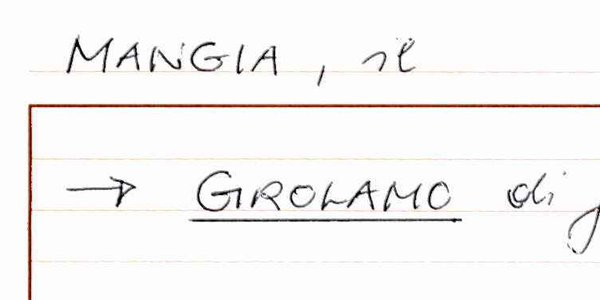 MANGIA, il
→ GIROLAMO di